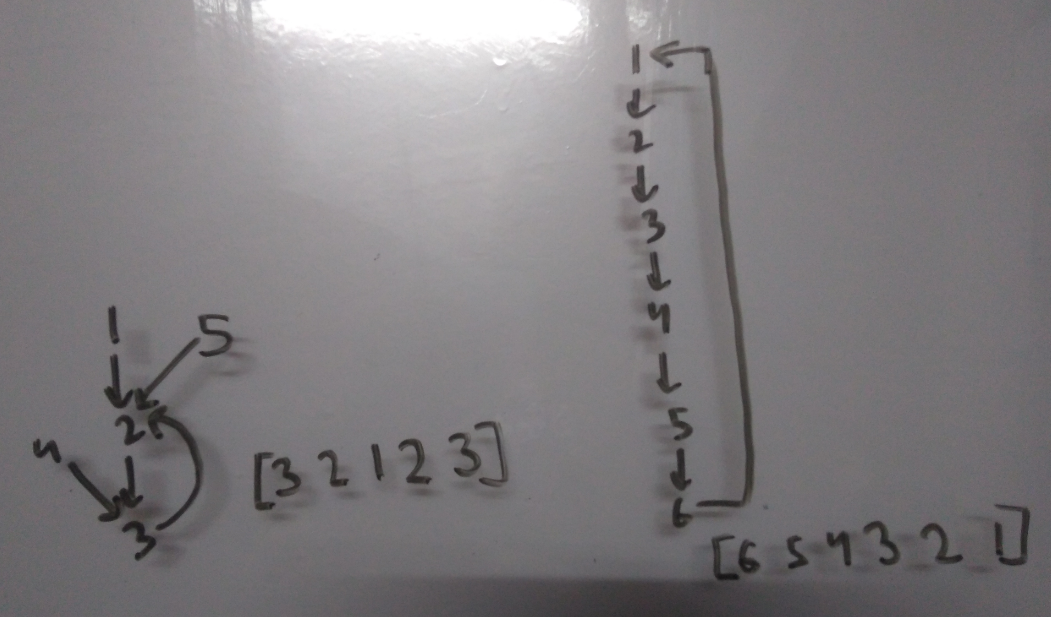 1 5
2
4
3
[3 2 1 2 3]
1
2
3
4
5
6
[6 5 4 3 2 1]